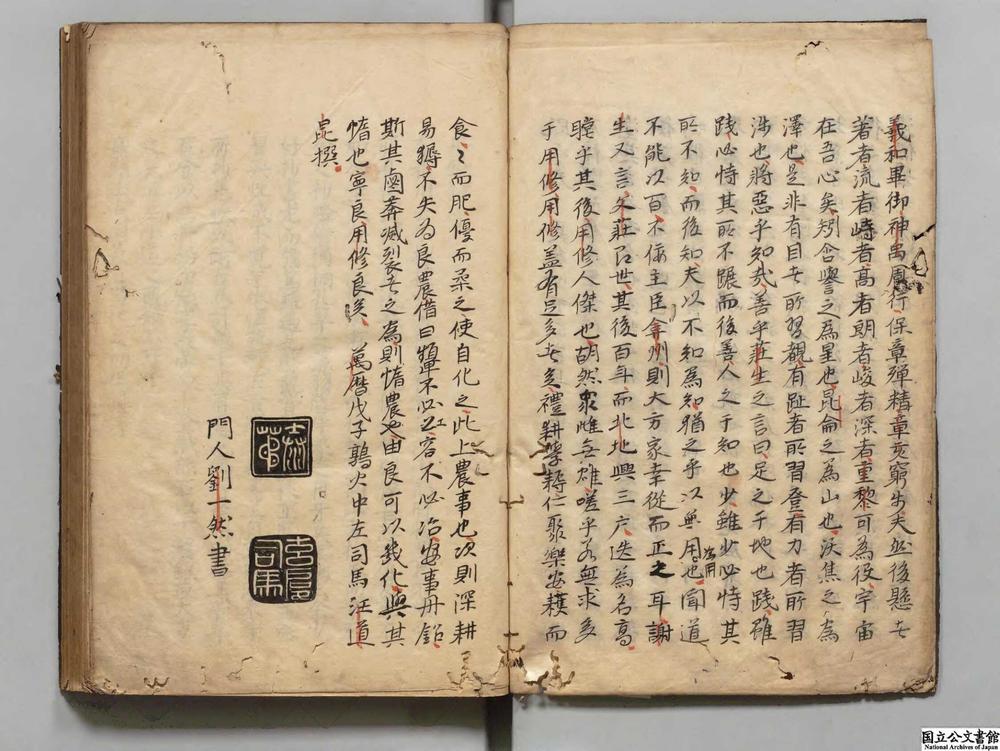 羲和畢御神禹周行保章殫精章亥窮步夫然後懸者
著者流者峙者高者朗者峻者深者重黎可為役宇宙
在吾心矣矧含譽之為星也昆侖之為山也沃焦之為
澤也是非有目者所習覩有趾者所習登有力者所習
涉也將惡乎知哉善乎莊生之言曰足之于地也踐雖
踐必恃其所不蹍而後善人之于知也少雖少必恃其
所不知而後知夫以不知為知猶之乎以無用為用也聞道
不能以百不佞主臣弇州則大方家幸從而正之耳謝
生又言文莊名世其後百年而北地興三户迭為名高
瞠乎其後用修人傑也胡然衆雌無雄嗟乎君無求多
于用修用修蓋有足多者矣禮耕學耨仁聚樂安穫而
食〻而肥優而柔之使自化之此上農事也次則深耕
易耨不失為良農借曰犨不必容不必冶安事丹鉛
斯其鹵莽滅裂者之為則惰農也由良可以幾化與其
惰也寧良用修良矣 萬曆戊子鶉火中左司馬汪道
昆撰
門人劉一然書
司馬
国立公文書館
National Archives of Japan